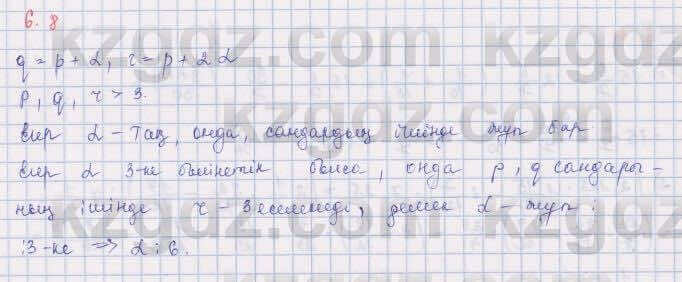 6.8
q = p + d, r = p + 2d
p, q, r > 3.
егер d – тақ, онда, сандардың ішінде жұп бар
егер d 3-ке бөлінетін болса, онда p, q сандары-
ның ішінде r – 3 еселенеді, демек d – жұп :
:3-ке => d : 6.
kzgdz.com kzgdz.com